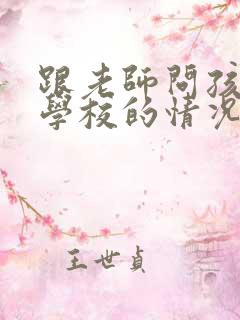 跟老師問孩
學校的情況
王世貞